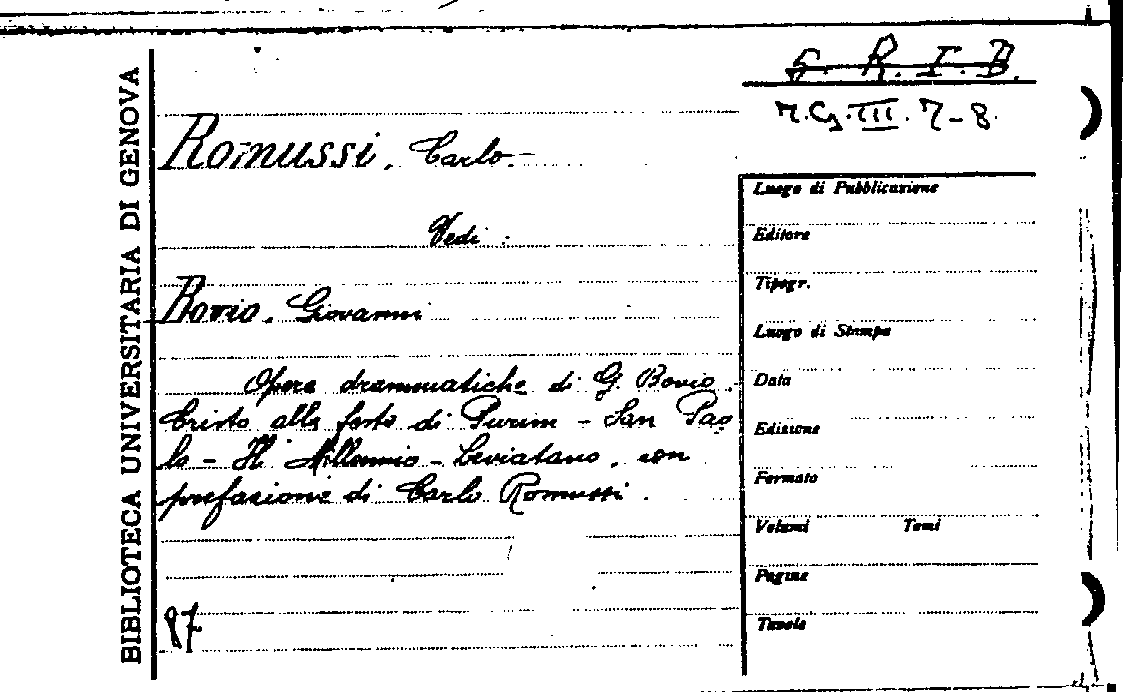 BIBLIOTECA UNIVERSITARIA DI GENOVA
G. R. I. B.
M.G. III. 7-8.
Romussi, Carlo.-
Vedi:
Bovio, Giovanni
Opere drammatiche di G. Bovio.
Cristo alla festa di Purim - San Pao
lo - Il Millennio - Leviatano, con
prefazione di Carlo Romussi.
87
Luogo di Pubblicazione
Editore
Tipogr.
Luogo di Stampa
Data
Edizione
Formato
Volumi Tomi
Pagine
Tavole